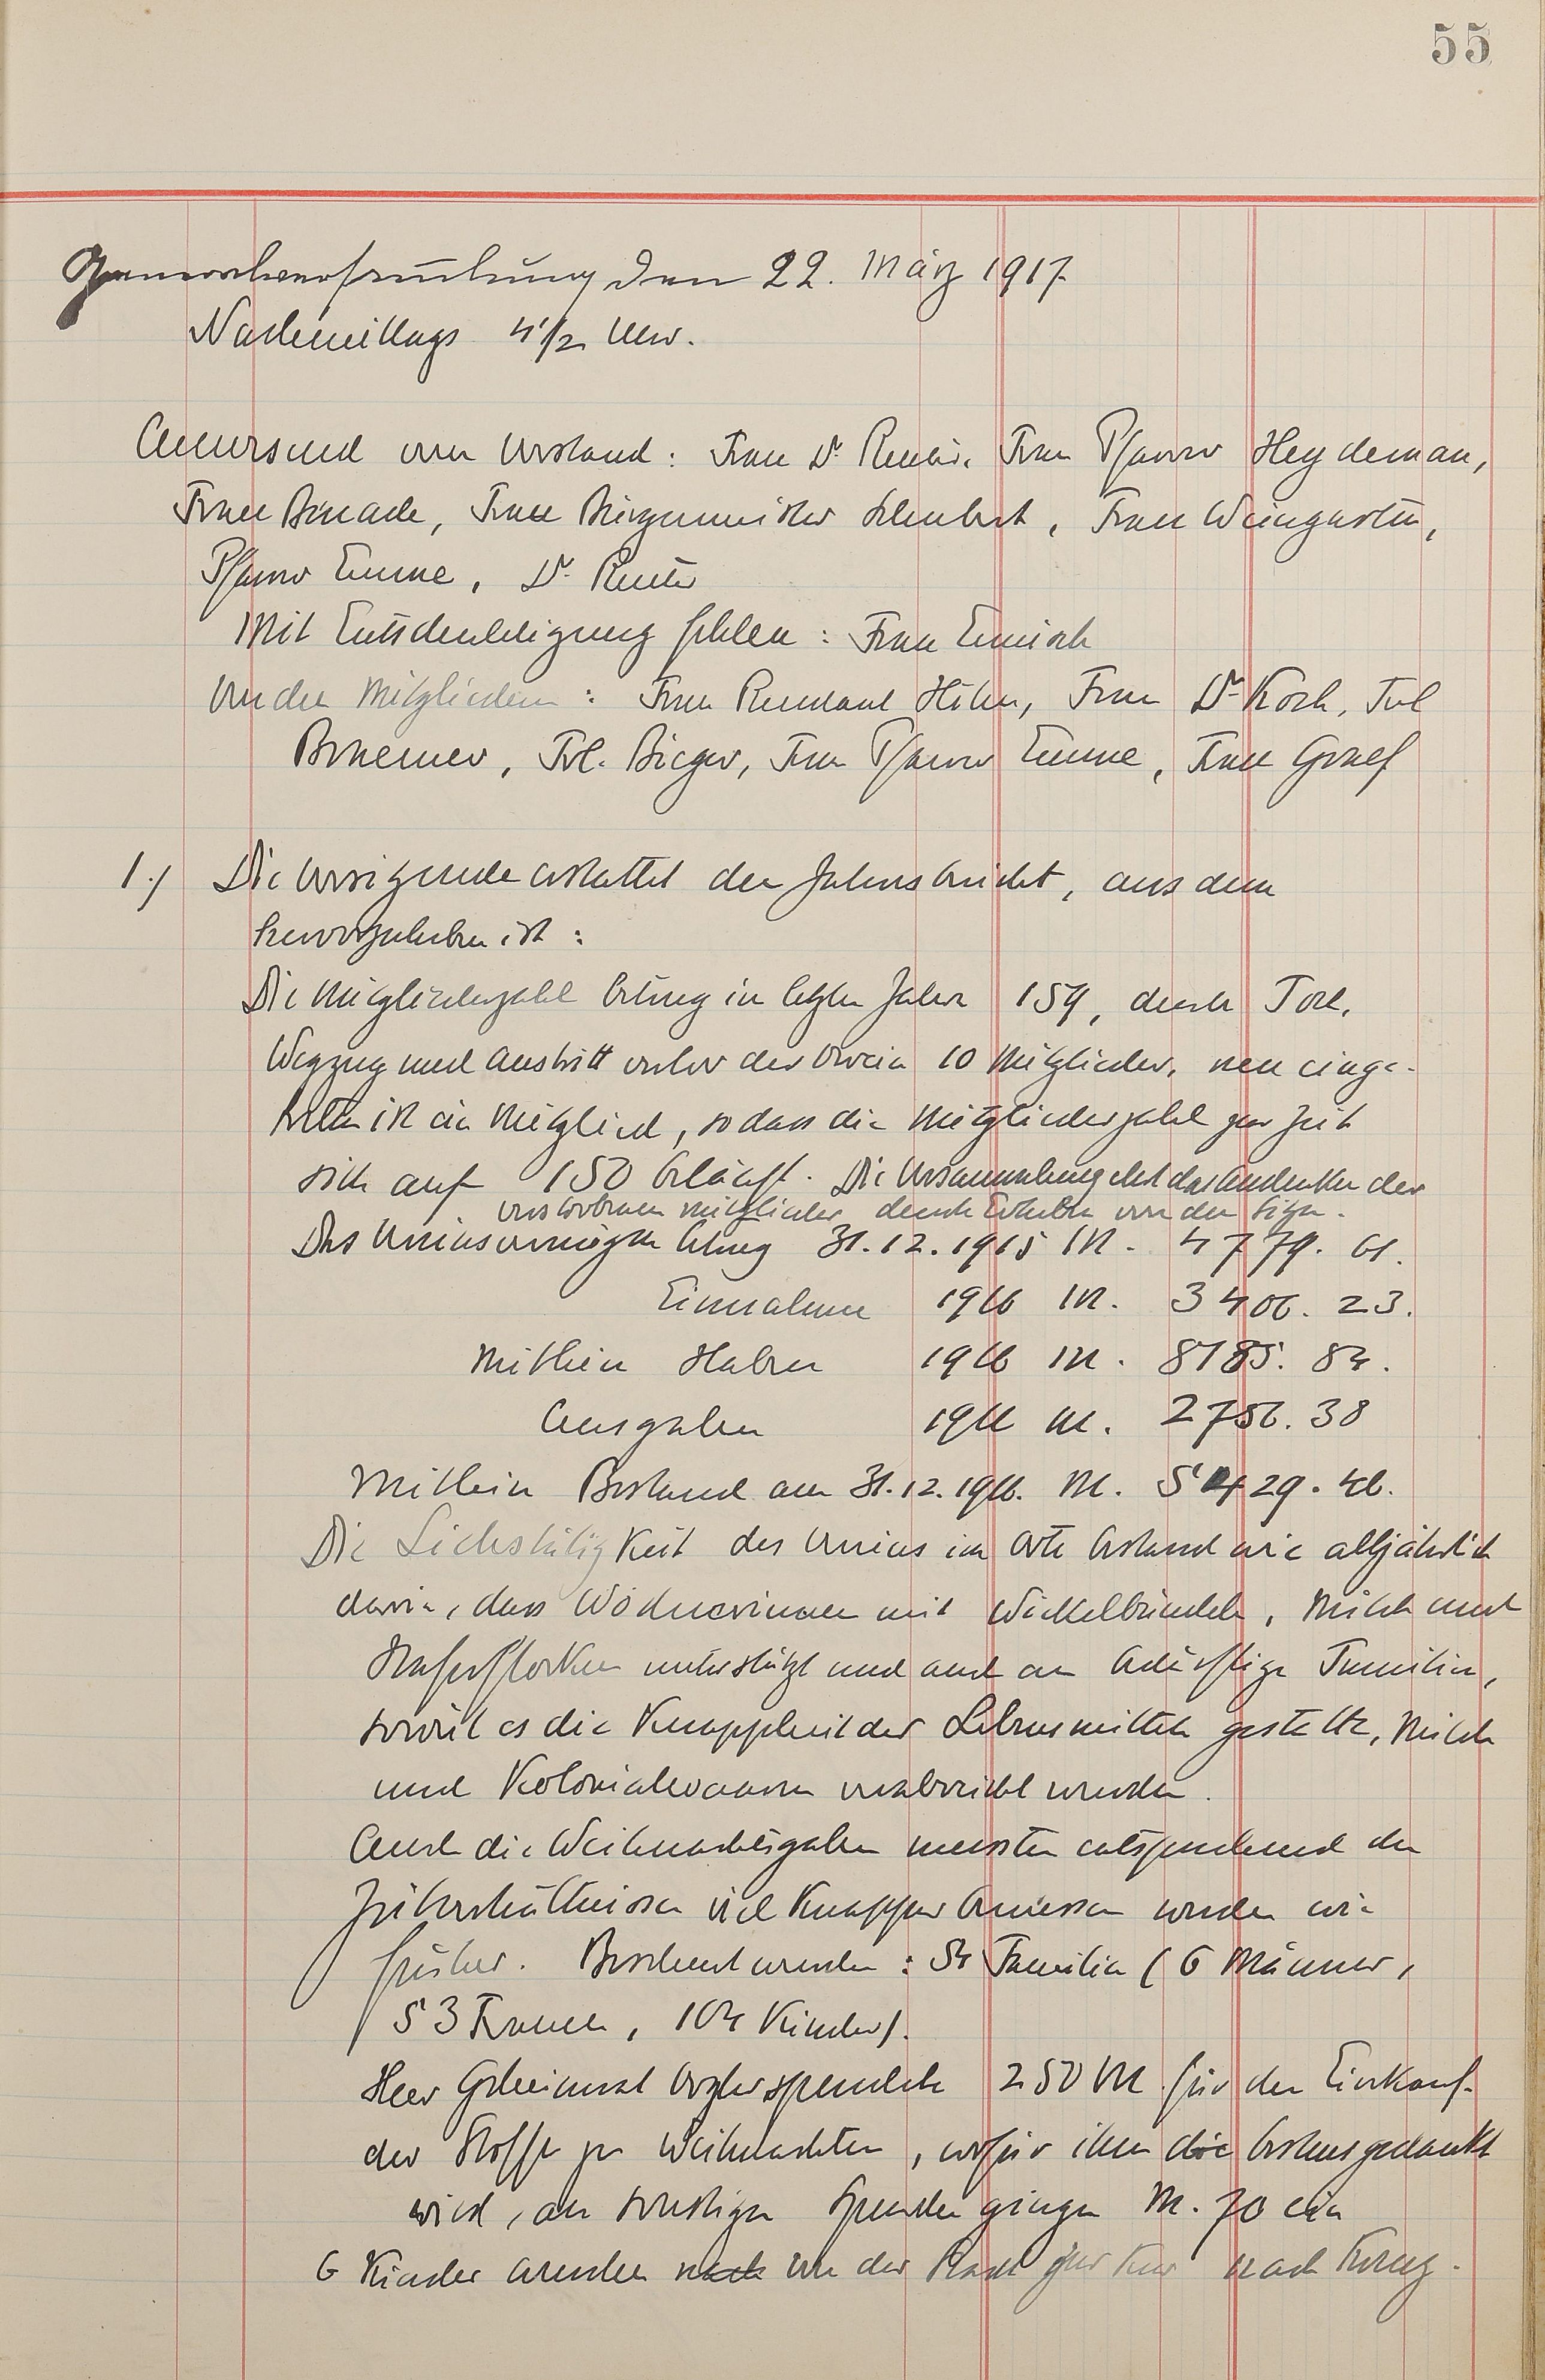 55
Generalversammlung den 22. März 1917
Nachmittags 4 1/2 Uhr.
Anwesend vom Vorstand: Frau Dr. Reuter, Frau Pfarrer Heydeman,
Frau Benade, Frau Bürgermeister Schubert, Frau Weingarten,
Pfarrer Emme, Dr. Reuter
Mit Entschuldigung fehlen: Frau Emisch
Von den Mitgliedern: Frau Rendant Frau Dr. Koch, Frl
Frl. Bieger, Frau Pfarrer Emme, Frau Graef
1.) Die Vorsitzende erstattet den Jahresbericht, aus dem
hervorzuheben ist:
Die Mitgliederzahl betrug im letzten Jahre 159, durch Tod,
Wegzug und Austritt verlor der Verein 10 Mitglieder, neu einge-
treten ist ein Mitglied, so dass die Mitgliederzahl zur Zeit
sich auf 150 beläuft. Die Versammlung ehrt das Andenken der
verstorbenen Mitglieder durch Erheben von den Sitzen.
Das Vereinsvermögen betrug 31.12.1915 M. 4779. 61.
Einnahme 1916 M. 3406. 23.
Mithin Haben 1916 M. 8185. 84.
Ausgaben 1916 M. 2756. 38
Mithin Bestand am 31.12.1916. M. 5429. 46.
Die Liebestätigkeit des Vereins im Orte bestand wie alljährlich
darin, dass Wöchnerinnen mit Wickelbündeln, Milch und
Haferflocken unterstützt und auch an bedürftige Familien,
soweit es die Knappheit der Lebensmittel gestatte, Milch
und Kolonialwaaren verabreicht wurden.
Auch die Weihnachtsgaben mussten entsprechend den
Zeitverhältnissen viel knapper bemessen werden wie
früher. Beschenkt wurden: 54 Familien (6 Männer,
53 Frauen, 104 Kinder).
Herr Geheimrat spendete 250 M für den Einkauf
der Stoffe zu Weihnachten, wofür ihm die bestens gedankt
wird, an sonstigen Spenden gingen M. 70 ein
6 Kinder wurden nach von der Stadt zur Kur nach